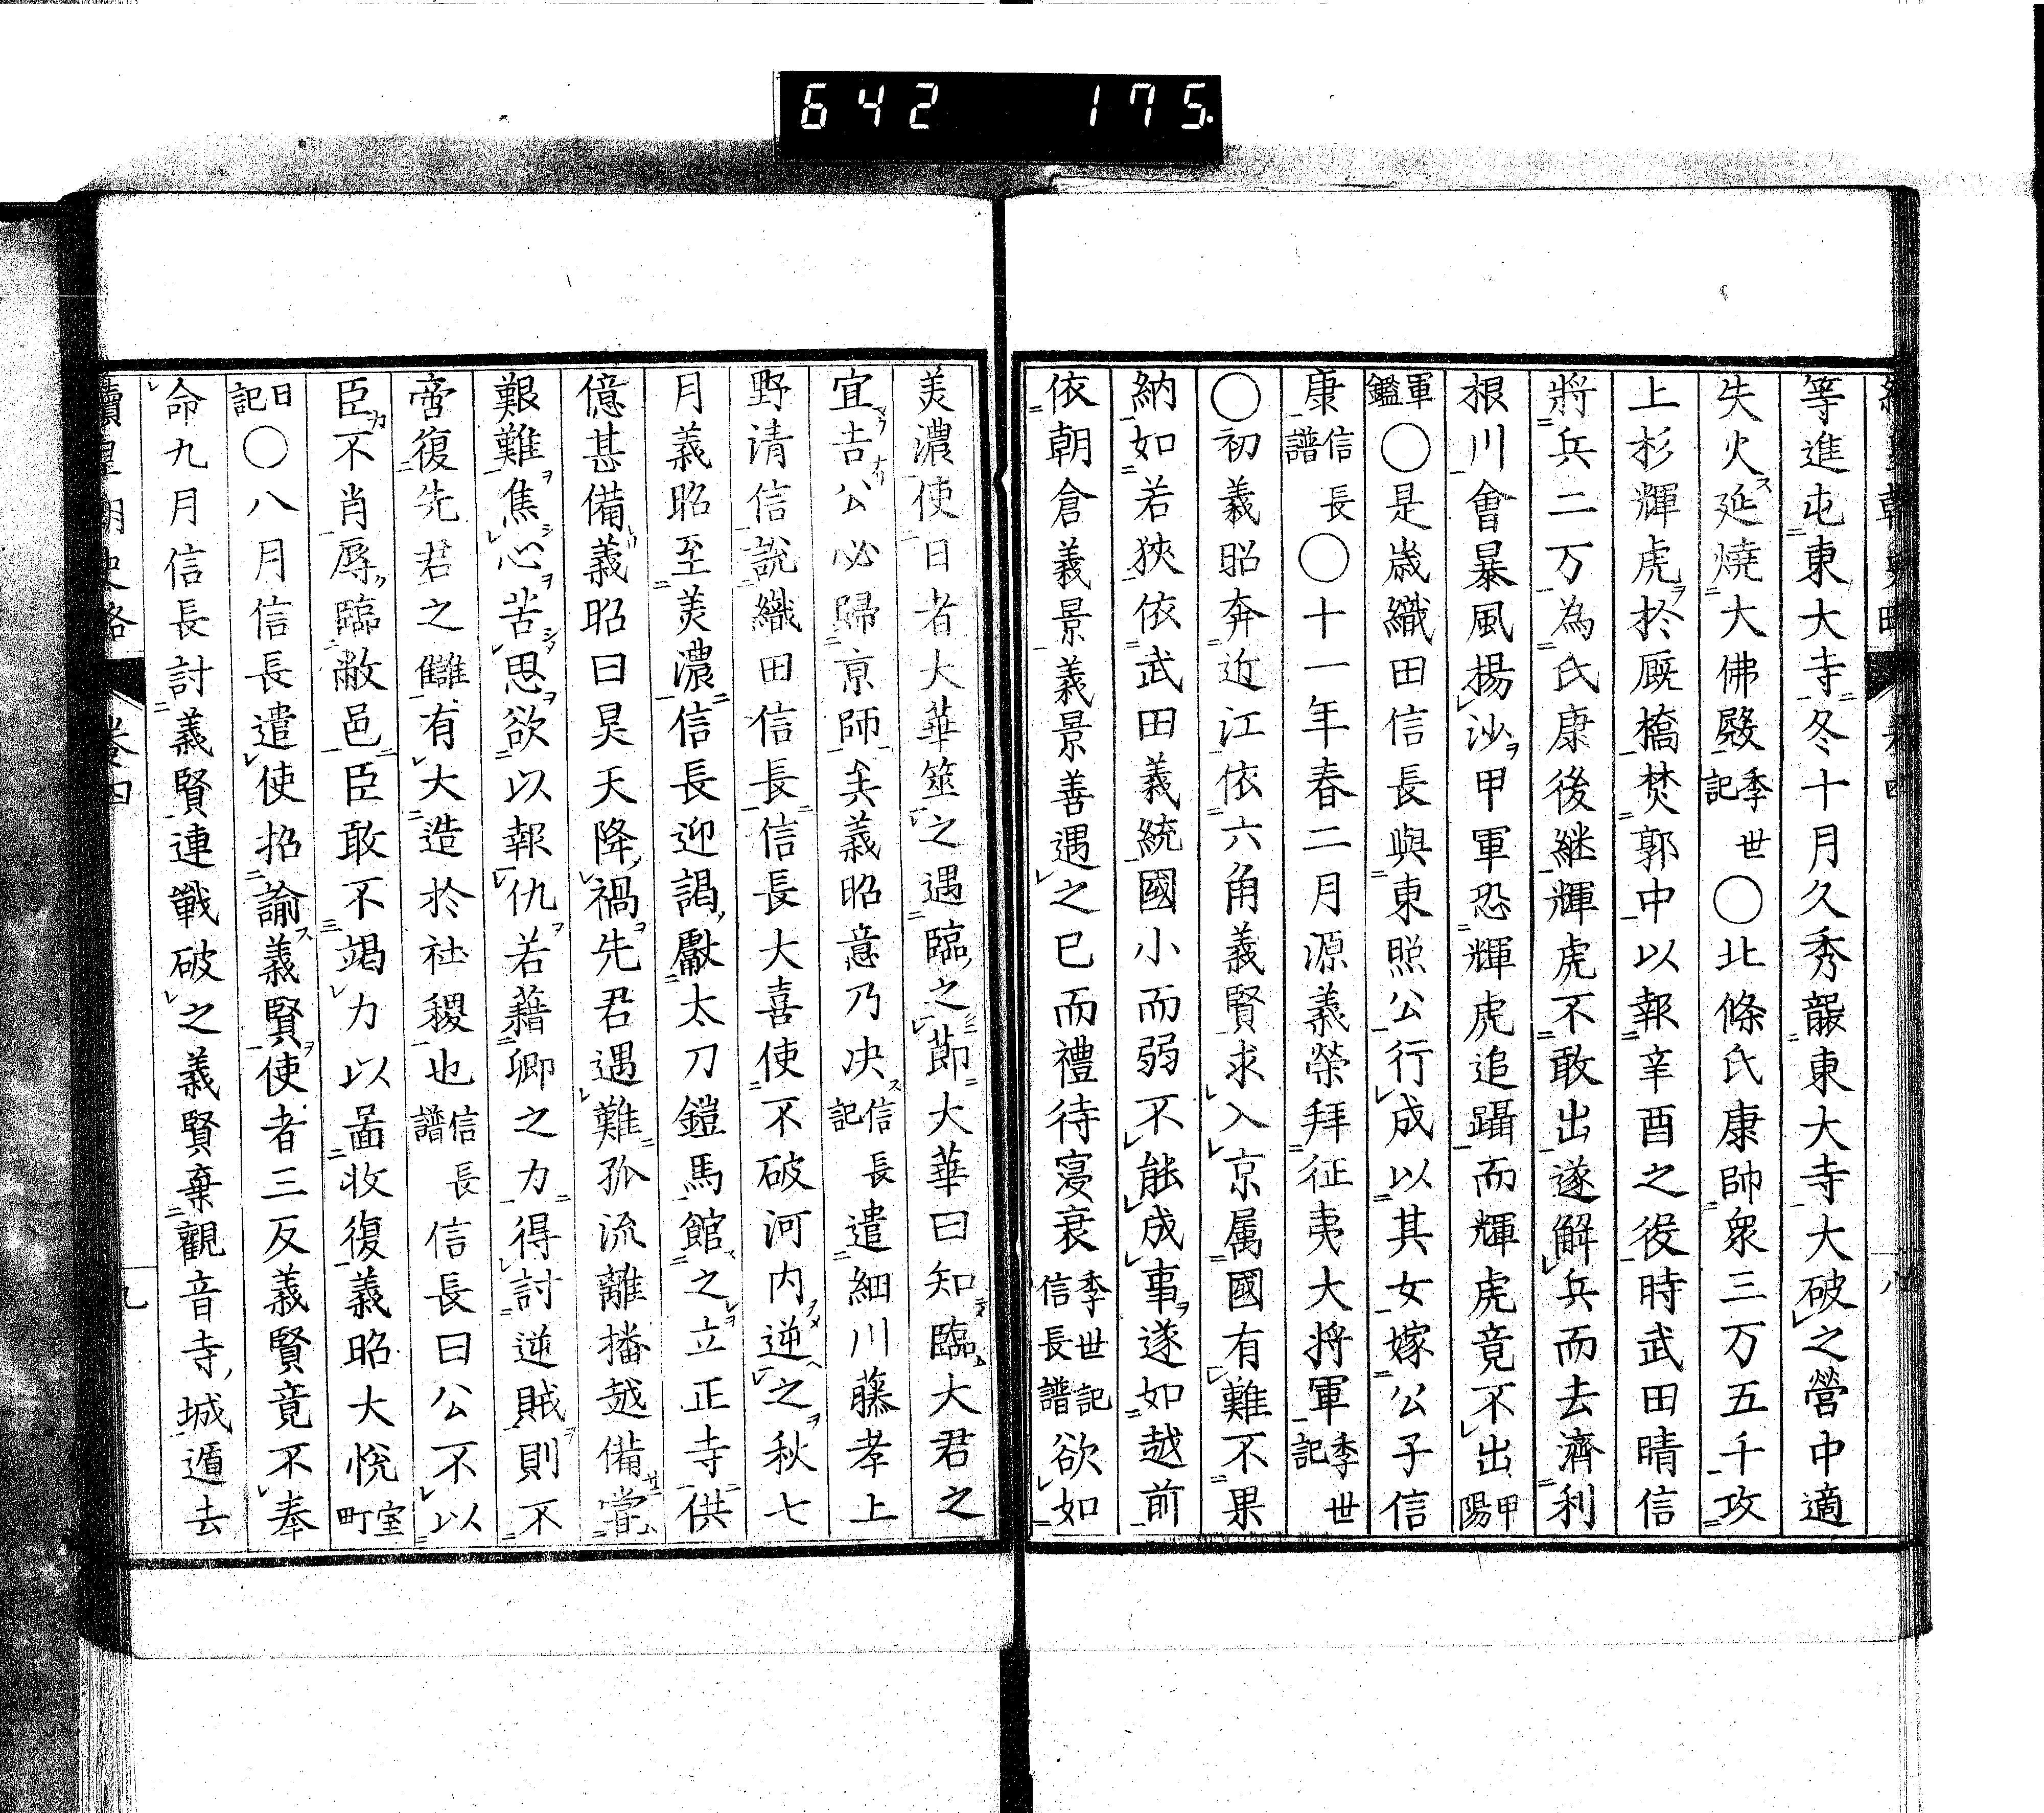 642 175
等進屯東大寺冬十月久秀襲東大寺大破之營中適
失火延燒大佛殿季世記○北條氏康帥衆三万五千攻
上杉輝虎於厩橋焚郭中以報辛酉之役時武田晴信
將兵二万為氏康後継輝虎不敢出遂解兵而去濟利
根川會暴風揚沙甲軍恐輝虎追躡而輝虎竟不出甲陽
軍鑑○是歲織田信長與東照公行成以其女嫁公子信
康信長譜○十一年春二月源義榮拜征夷大将軍季世記
○初義昭奔近江依六角義賢求入京属國有難不果
納如若狹依武田義統國小而弱不能成事遂如越前
依朝倉義景義景善遇之已而禮待寖衰季世記信長譜欲如
美濃使日者大華筮之遇臨之節大華曰知臨大君之
宜吉公必歸京師矣義昭意乃决信長記遣細川藤孝上
野清信說織田信長信長大喜使不破河内逆之秋七
月義昭至美濃信長迎謁獻太刀鎧馬館之立正寺供
億甚備義昭曰旻天降禍先君遇難孤流離播越備嘗
艱難焦心苦思欲以報仇若藉卿之力得討逆賊則不
啻復先君之讎有大造於社稷也信長譜信長曰公不以
臣不肖辱臨敝邑臣敢不竭力以啚收復義昭大悅室町
日記○八月信長遣使招諭義賢使者三反義賢竟不奉
命九月信長討義賢連戰破之義賢棄觀音寺城遁去
續皇朝史略 卷四 九